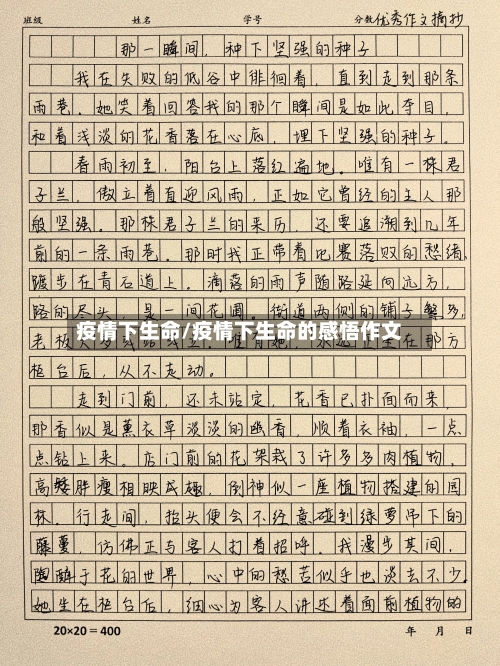 班级 姓名 学号 分数 优秀作文摘抄
那一瞬间，种下坚强的种子
我在失败的低谷中徘徊着，直到走到那条
雨巷。她笑着回答我的那个瞬间是如此夺目，
和着浅淡的花香落在心底，埋下坚强的种子。
春雨初至，阳台上落红遍地。唯有一株君
子兰，傲立着直迎风雨，正如它曾经的主人那
般坚强。那株君子兰的来历，还要追溯到几年
前的一条雨巷。那时我正带着比赛落败的愁绪，
踱步在青石道上。滴落的雨声随路延向远方，
路的尽头，是一间花圃。街道两侧的铺子繁多，
疫情下生命/疫情下生命的感悟作文
柜台后，从不走动。
走到门前，还未站定，花香已扑面而来，
那香似是薰衣草淡淡的幽香，顺着衣袖，一点
点钻上来。店门前的花架栽了许多多肉植物，
高矮胖瘦相映成趣，倒神似一座植物搭建的园
林。行走间，抬头便会不经意碰到绿萝吊下的
藤蔓，仿佛正与客人打着招呼。我漫步其间，
陶醉于花的世界，心中的愁苦似乎也淡去不少。
她坐在柜台后，细心为客人讲述着面前植物的
20×20＝400 年 月 日